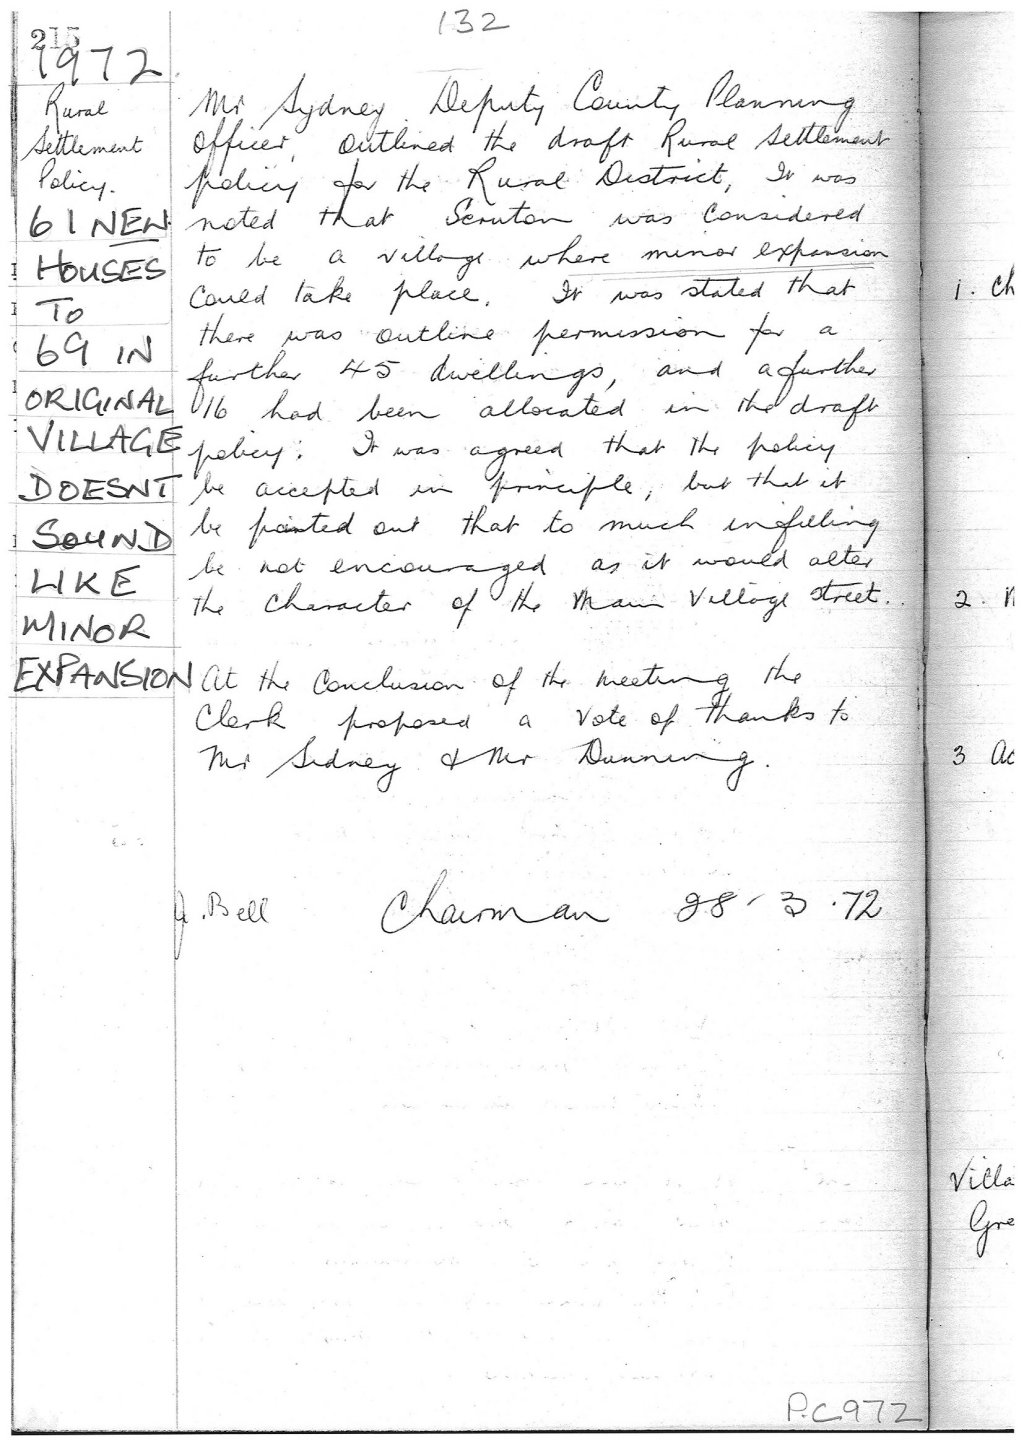 132
215
1972
Rural
Settlement
Policy.
61 NEW
HOUSES
TO
69 IN
ORIGINAL
VILLAGE
DOESNT
SOUND
LIKE
MINOR
EXPANSION
Mr Sydney Deputy County Planning
officer, outlined the draft Rural Settlement
policy for the Rural District, It was
noted that Scruton was considered
to be a village where minor expansion
could take place. It was stated that
there was outline permission for a
further 45 dwellings, and a further
16 had been allocated in the draft
policy: It was agreed that the policy
be accepted in principle, but that it
be pointed out that to much infilling
be not encouraged as it would alter
the character of the Main Village street..
At the conclusion of the meeting the
Clerk proposed a vote of thanks to
Mr Sidney & Mr Dunning.
J. Bell Chairman 28 - 3 . 72
1. Ch
2.
3 Ac
Villa
Gre
P.C972